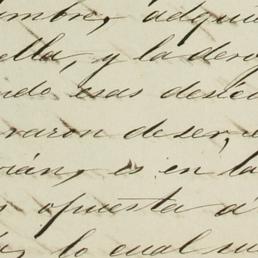 ombre, adqui
ella, y la dero
ndo esas desec
razon de ser, e
rián, es en la
opuesta á
lo cual su